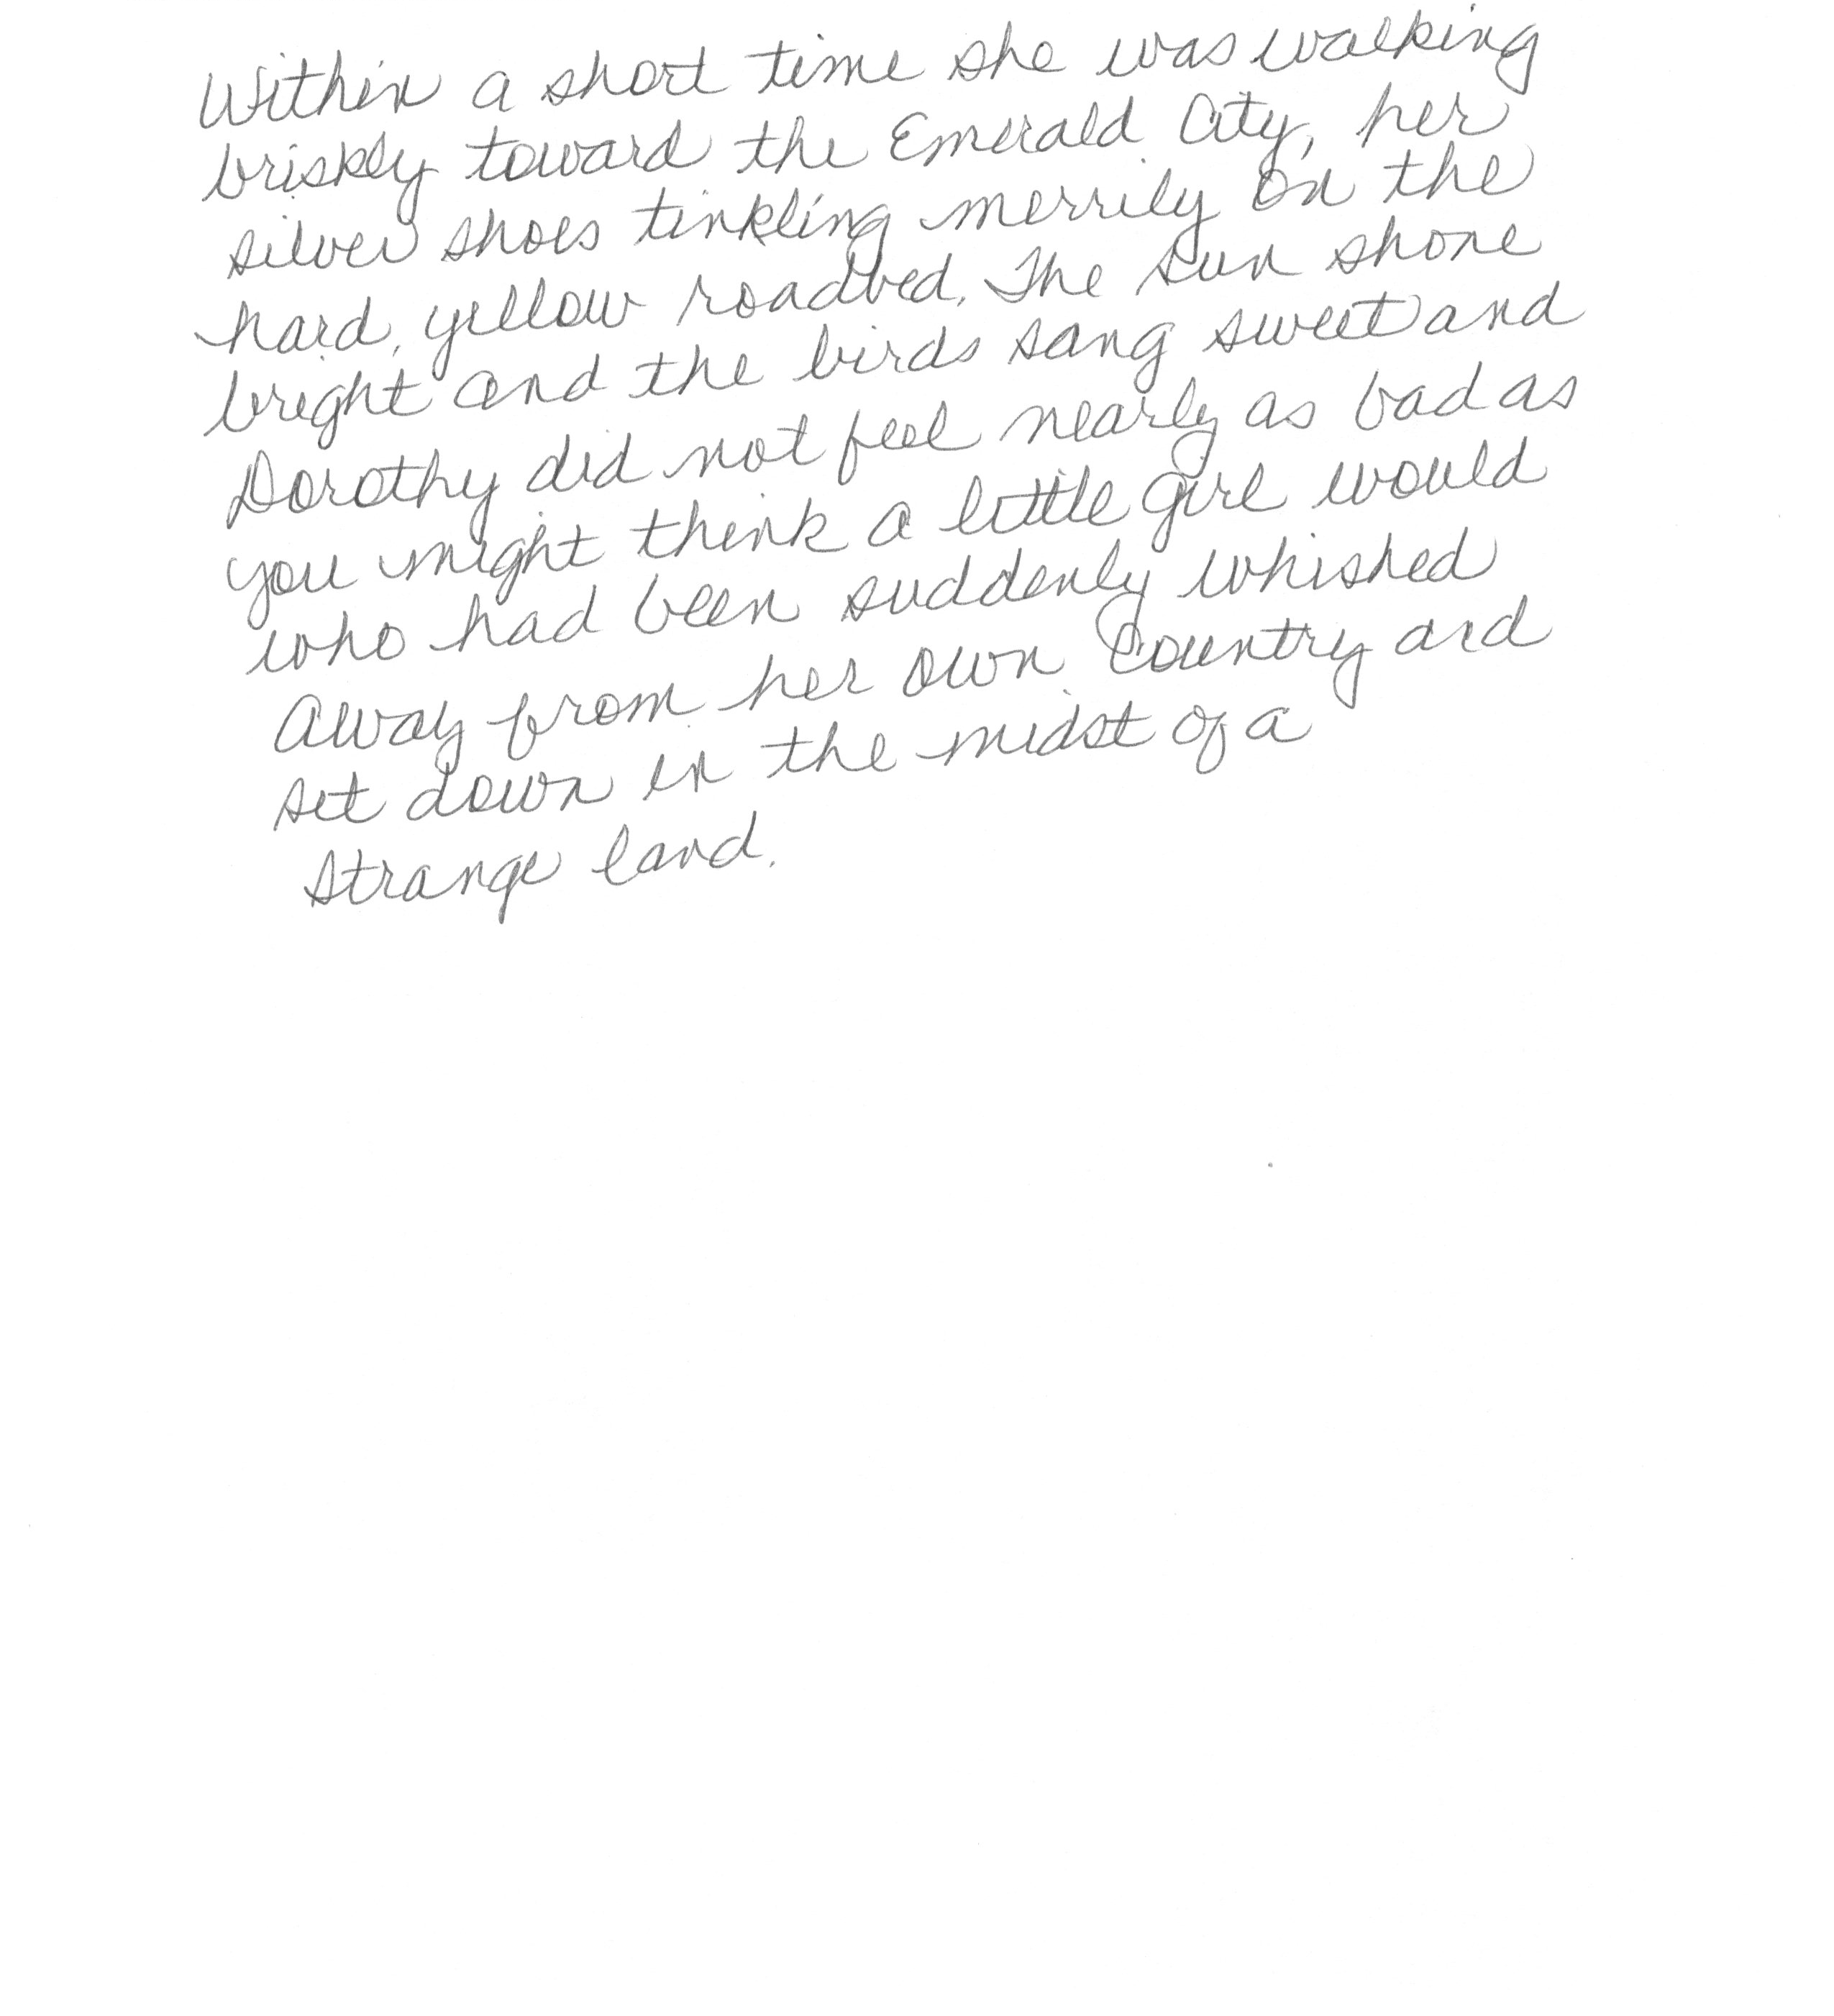 Within a short time she was walking
briskly toward the Emerald City, her
silver shoes tinkling merrily on the
hard, yellow roadbed. The sun shone
bright and the birds sang sweet and
Dorothy did not feel nearly as bad as
you might think a little girl would
who had been suddenly whished
away from her own country and
set down in the midst of a
strange land.